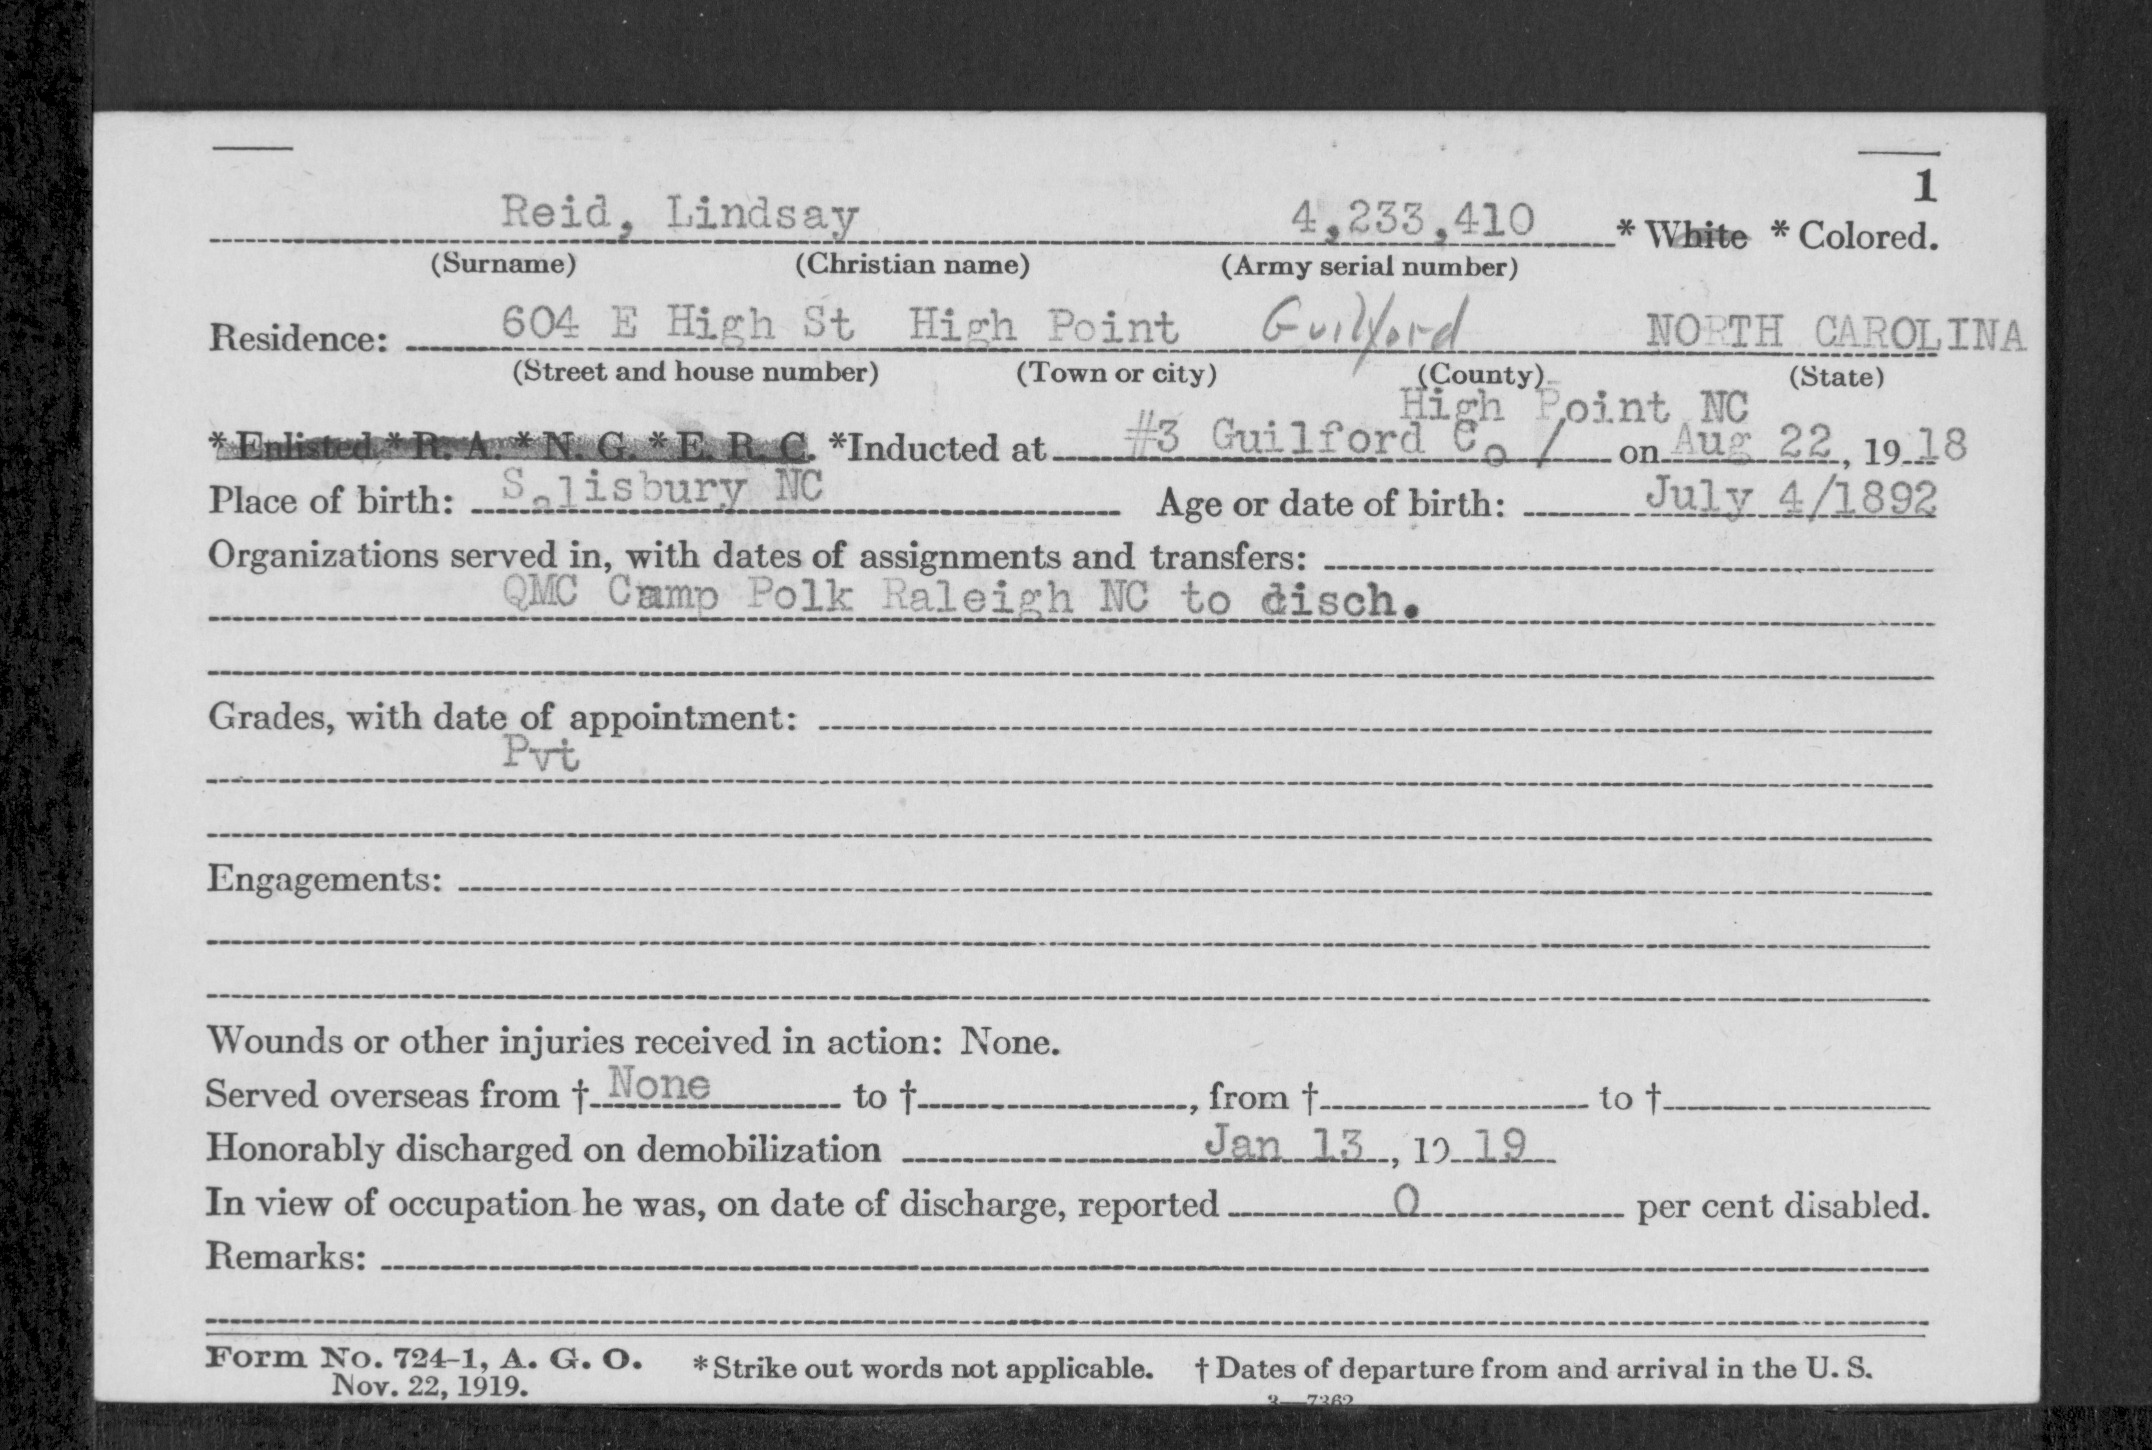 1
Reid, Lindsay 4,233,410 * White * Colored.
(Surname) (Christian name) (Army serial number)
Residence: 604 E High St High Point Guilford NORTH CAROLINA
(Street and house number) (Town or city) (County) (State)
High Point NC
* Enlisted * R. A. * N. G. * E. R. C. *Inducted at #3 Guilford Co / on Aug 22, 1918
Place of birth: Salisbury NC Age or date of birth: July 4/1892
Organizations served in, with dates of assignments and transfers:
QMC Camp Polk Raleigh NC to disch.
Grades, with date of appointment:
Pvt
Engagements:
Wounds or other injuries received in action: None.
Served overseas from † None to † , from † to †
Honorably discharged on demobilization Jan 13, 1919
In view of occupation he was, on date of discharge, reported 0 per cent disabled.
Remarks:
Form No. 724-1, A. G. O. *Strike out words not applicable. † Dates of departure from and arrival in the U. S.
Nov. 22, 1919.
3—7362